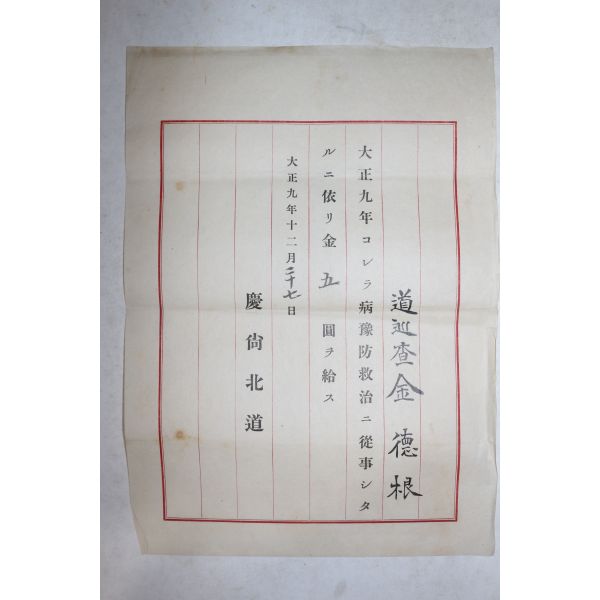 道巡査金德根
大正九年コレラ病豫防救治ニ從事シタ
ルニ依リ金五圓ヲ給ス
大正九年十二月二十七日
慶尙北道